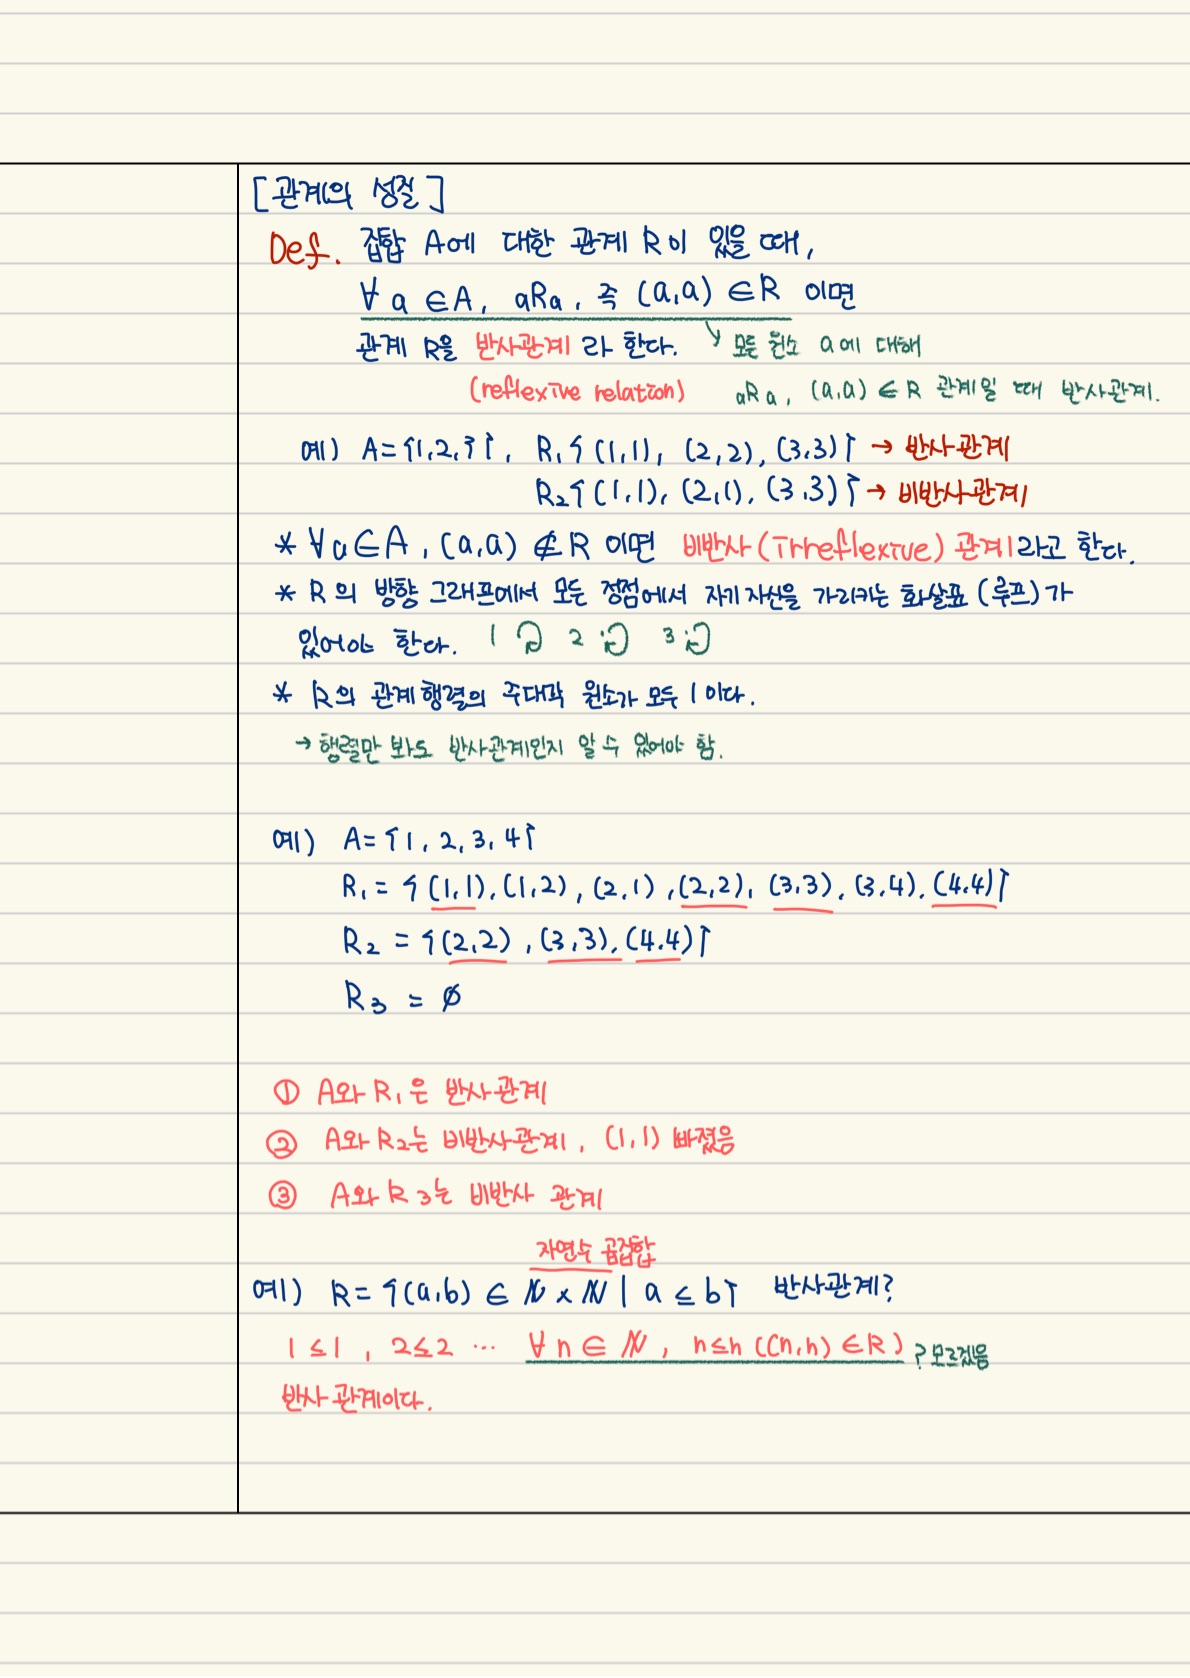 [관계의 성질]
Def. 집합 A에 대한 관계 R이 있을 때,
∀a∈A, aRa, 즉 (a,a)∈R 이면
관계 R을 반사관계 라 한다. ↘ 모든 원소 a에 대해
(reflexive relation) aRa, (a,a)∈R 관계일 때 반사관계.
예) A={1,2,3}, R₁{(1,1), (2,2), (3,3)} → 반사관계
R₂{(1,1), (2,1), (3,3)} → 비반사관계
* ∀a∈A, (a,a)∉R 이면 비반사(Irreflexive) 관계라고 한다.
* R의 방향 그래프에서 모든 정점에서 자기 자신을 가리키는 화살표 (루프)가
있어야 한다. 1 2 3
* R의 관계행렬의 주대각 원소가 모두 1이다.
→ 행렬만 봐도 반사관계인지 알 수 있어야 함.
예) A={1, 2, 3, 4}
R₁ = {(1,1), (1,2), (2,1), (2,2), (3,3), (3,4), (4,4)}
R₂ = {(2,2), (3,3), (4,4)}
R₃ = ∅
① A와 R₁은 반사관계
② A와 R₂는 비반사관계, (1,1) 빠졌음
③ A와 R₃는 비반사 관계
자연수 곱집합
예) R={(a,b) ∈ ℕ×ℕ | a ≤ b} 반사관계?
1≤1, 2≤2 … ∀n∈ℕ, n≤n ((n,n)∈R) ? 모르겠음
반사관계이다.